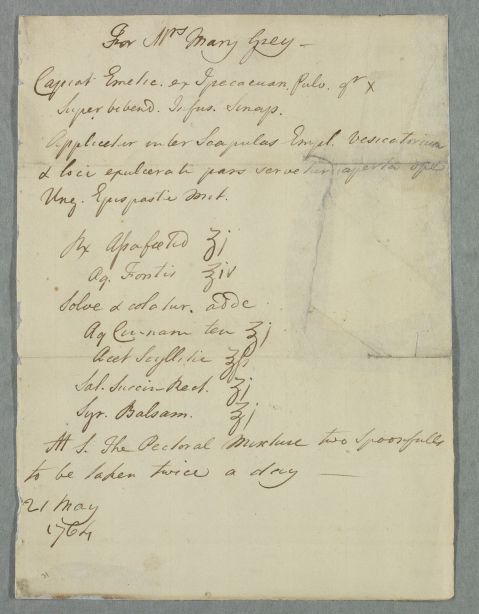 For Mrs Mary Grey —
Capiat Emetic. ex Ipecacuan. Pulv. gr x
Super bibend. Infus. Sinap.
Applicetur inter Scapulas Empl. Vesicatorium
& loci exulcerati pars servetur aperta ope
Ung. Epispastic Mit.
Rx Assafœtid ʒj
Aq. Fontis ℥iv
Solve & colatur. adde
Aq Cinnam ten ℥j
Acet Scyllitic ℥ß
Sal. Succin Rect. ʒj
Syr. Balsam. ℥j
M S. The Pectoral Mixture two Spoonfulls
to be taken twice a day —
21 May
1764